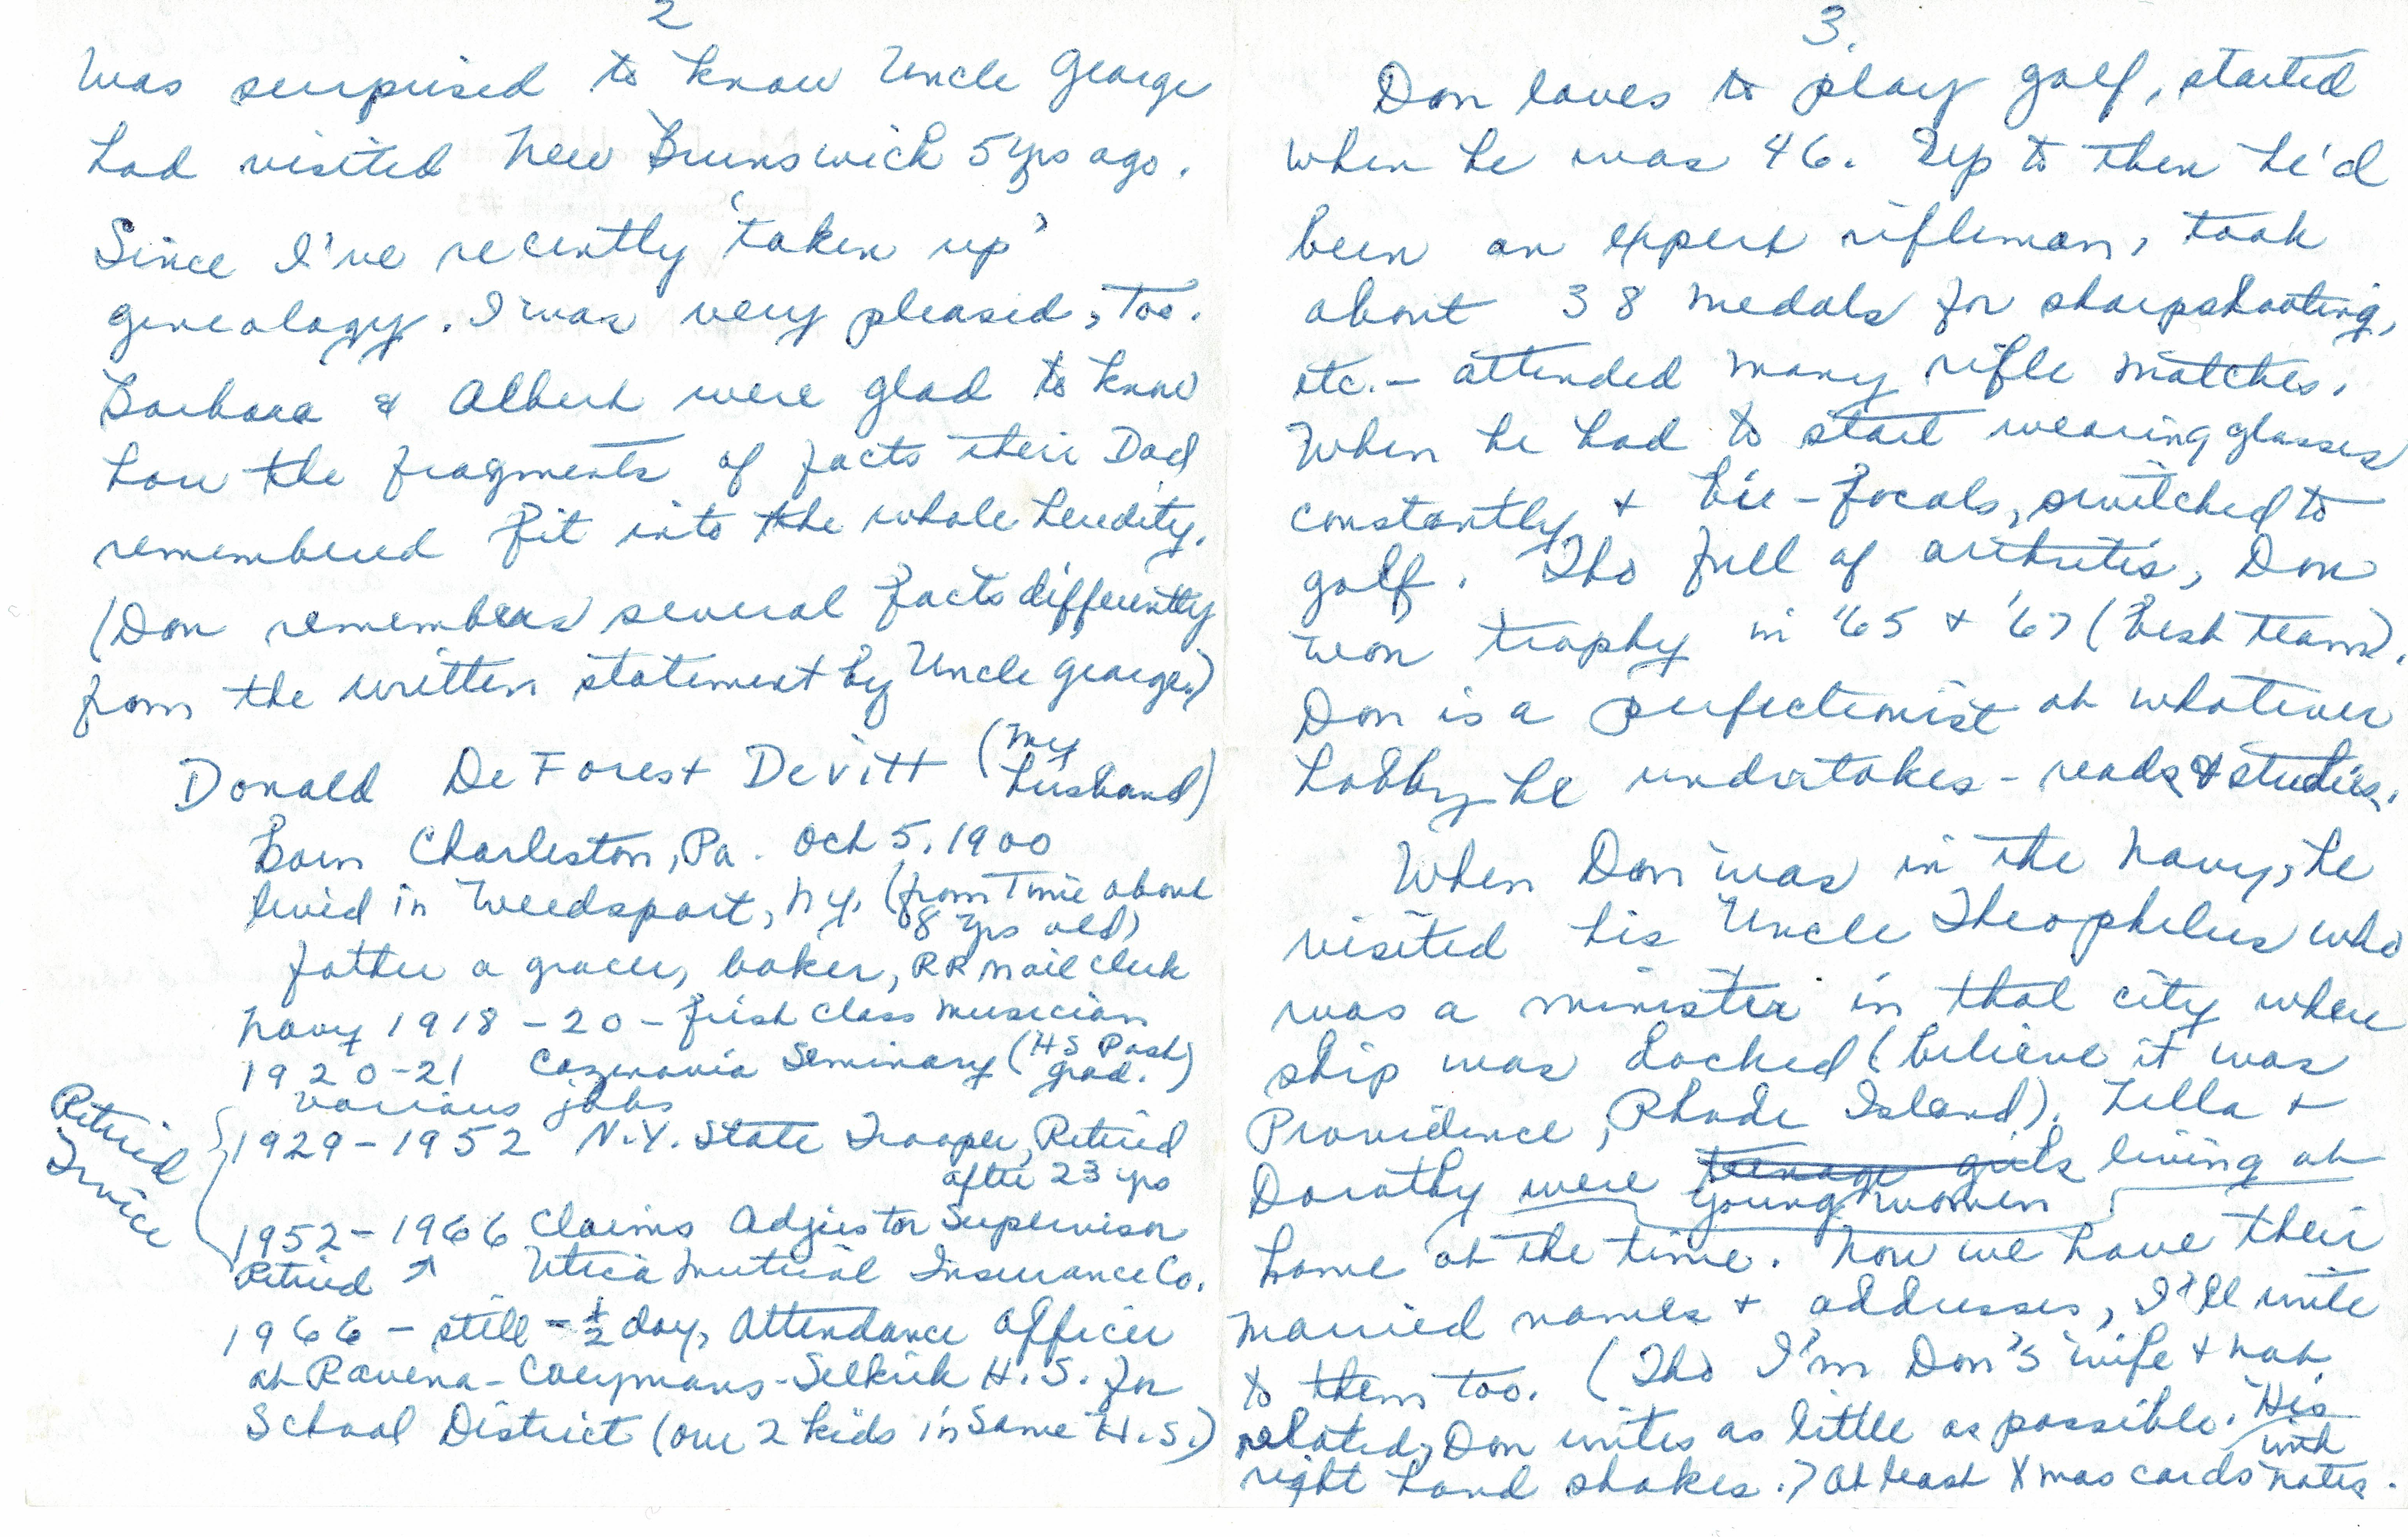 2
was surprised to know Uncle George
had visited New Brunswick 5 yrs ago.
Since I've recently 'taken up'
genealogy. I was very pleased, too.
Barbara & Albert were glad to know
how the fragments of facts their Dad
remembered fit into the whole heredity.
(Don remembers several facts differently
from the written statement by Uncle George.)
Donald DeForest Devitt (my
husband)
Born Charleston, Pa. Oct 5, 1900
lived in Weedsport, N.Y. (from Time about
8 yrs old)
father a grocer, baker, RR mail clerk
Navy 1918-20 - first class musician
1920-21 Cazenovia Seminary (HS Post
grad.)
various jobs
1929-1952 N.Y. State Trooper, Retired
after 23 yrs
Retired
Service
1952-1966 Claims Adjustor Supervisor
Retired ↑ Utica Mutual Insurance Co.
1966 - still - ½ day, Attendance Officer
at Ravena-Coeymans-Selkirk H.S. for
School District (our 2 kids in same H.S.)
3.
Don loves to play golf, started
when he was 46. Up to then he'd
been an expert rifleman, took
about 38 medals for sharpshooting,
etc. - attended many rifle matches.
When he had to start wearing glasses
constantly + bie-focals, switched to
golf. Tho full of arthritis, Don
won trophy in '65 + '67 (best team).
Don is a perfectionist at whatever
hobby he undertakes - reads & studies.
When Don was in the Navy, he
visited his Uncle Theophelus who
was a minister in that city where
ship was docked (believe it was
Providence, Rhode Island). Lella +
Dorothy were teenage girls living at
young women
home at the time. Now we have their
married names + addresses, I'll write
to them too. (Tho I'm Don's wife + not
related, Don writes as little as possible. His
right hand shakes.) At least Xmas cards with
notes.